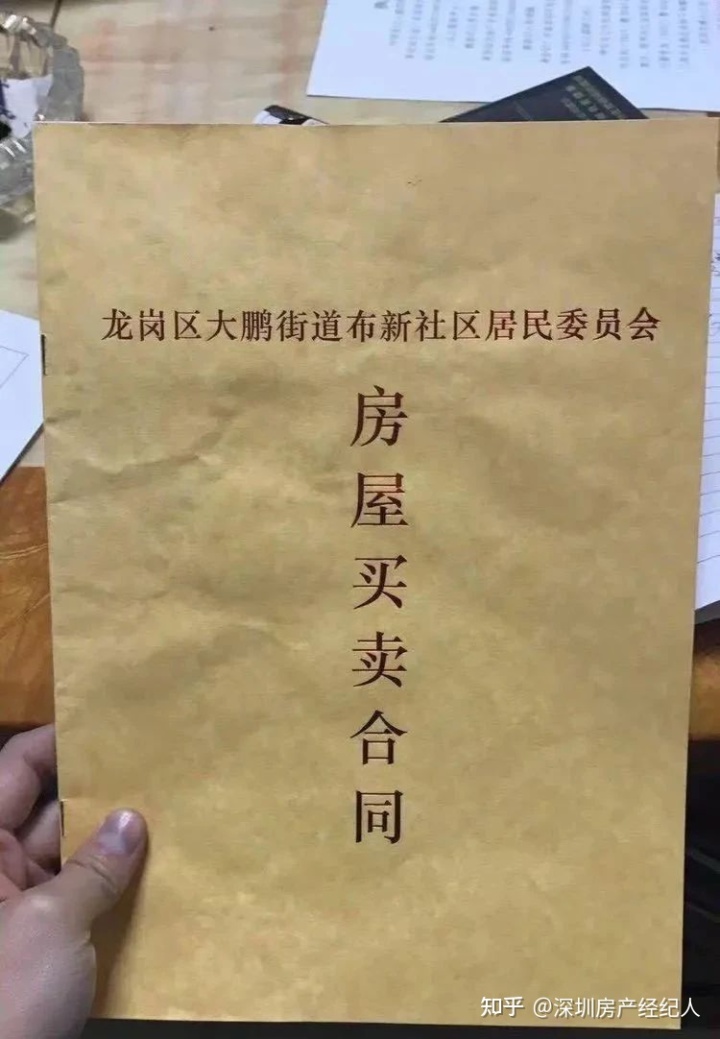 龙岗区大鹏街道布新社区居民委员会
房屋买卖合同
知乎 @深圳房产经纪人